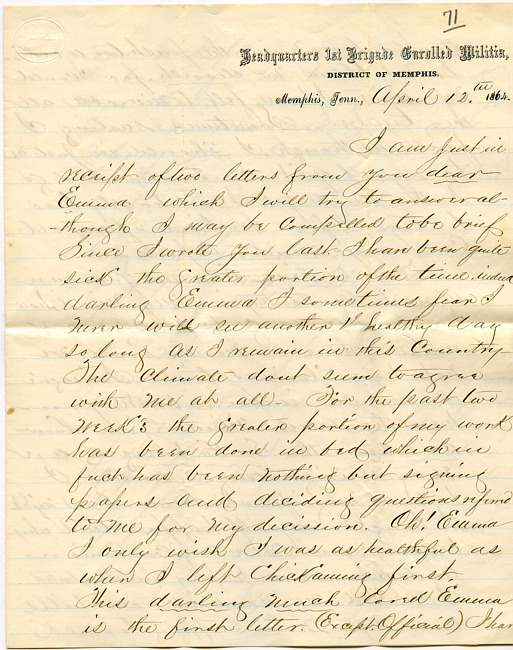 71
Headquarters 1st Brigade Enrolled Militia,
DISTRICT OF MEMPHIS.
Memphis, Tenn., April 12.th 1864.
I am Just in
receipt of two letters from you dear
Emma which I will try to answer al-
-though I may be Compelled to be brief
Since I wrote you last I have been quite
sick the greater portion of the time. indeed
darling Emma I sometimes fear I
never will see another healthy day
so long as I remain in this Country
The Climate dont seem to agree
with me at all. For the past two
week's the greater portion of my work
has been done in bed which in
fact has been nothing but signing
papers and deciding questions refered
to me for my decission. Oh! Emma
I only wish I was as healthful as
when I left Chickaming first.
This darling much loved Emma
is the first letter. (Except. Official) I hav